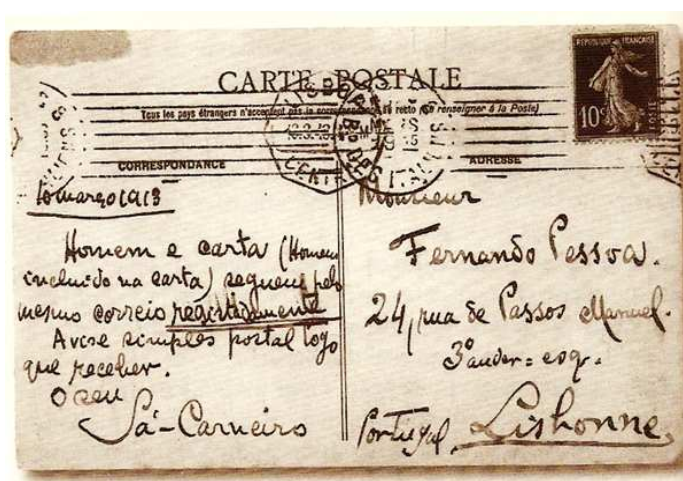 CARTE POSTALE
Tous les pays étrangers n'acceptent pas la correspondance au recto (se renseigner à la Poste)
REPUBLIQUE FRANÇAISE
10c
POSTE
CORRESPONDANCE
10 março 1913
Homem e carta (Homem
incluido na carta) seguem pelo
mesmo correio registadamente
Avise simples postal logo
que receber.
O seu
Sá-Carneiro
ADRESSE
Monsieur
Fernando Pessoa.
24, rua de Passos Manuel.
3º andar = esq.
Portugal, Lisbonne